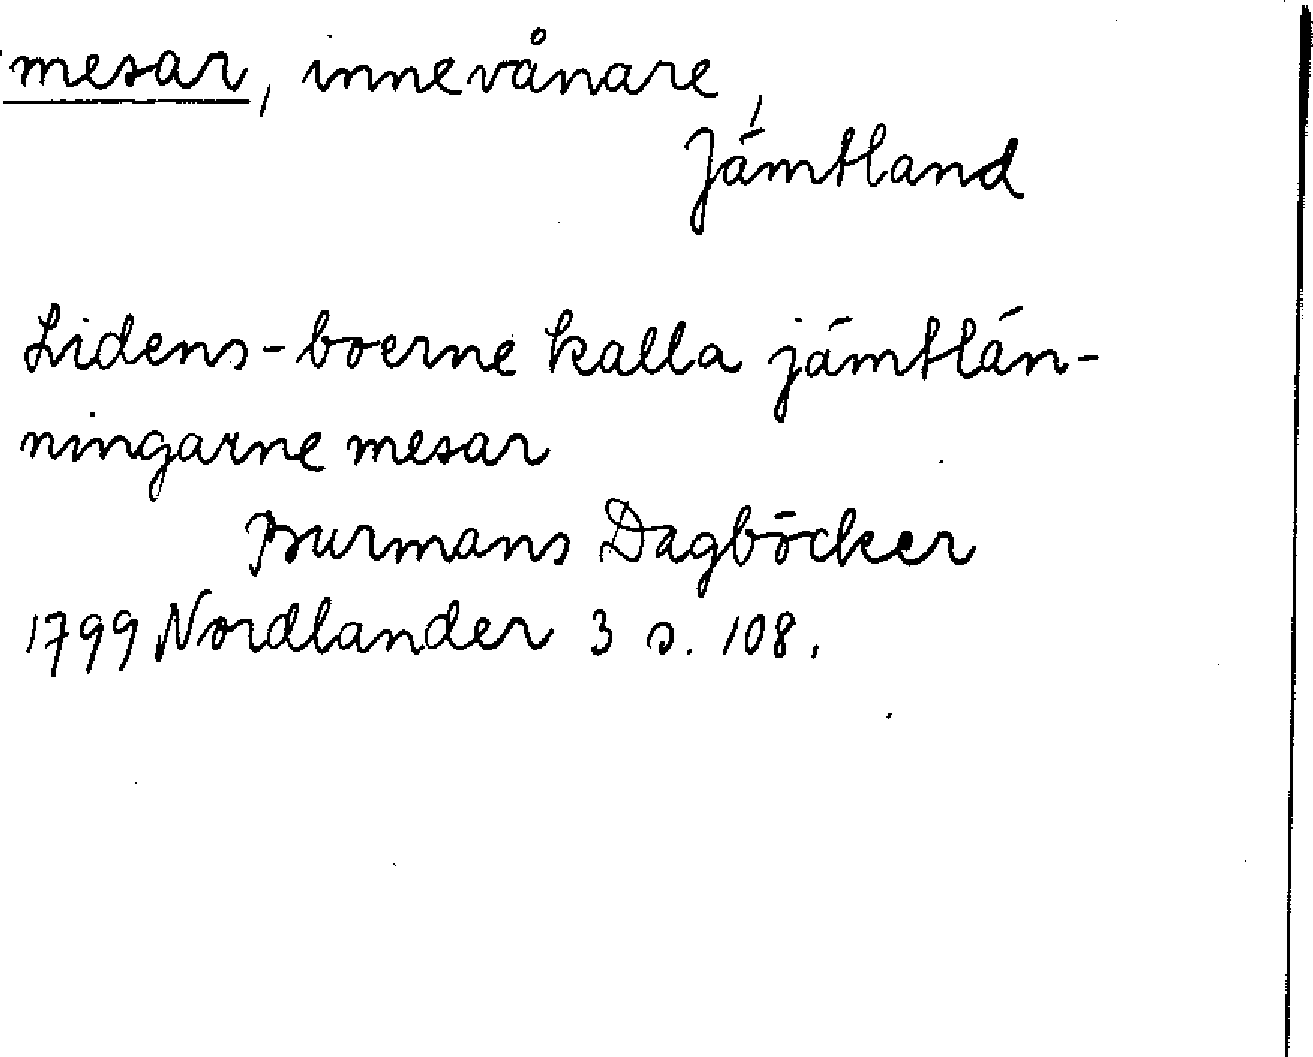 mesar, innevånare,
Jämtland
Lidens-boerne kalla jämtlän-
ningarne mesar
Burmans Dagböcker
1799 Nordlander 3 s. 108.